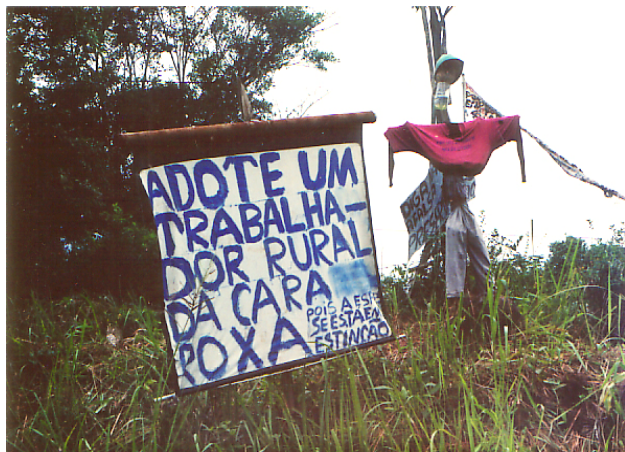 ADOTE UM
TRABALHA-
DOR RURAL
DA CARA
ROXA
POIS A ESPE
SE ESTA EN
ESTINCÃO